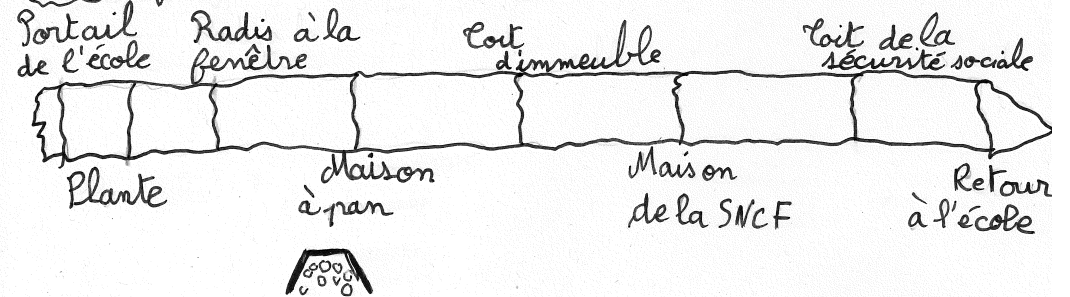 Portail
de l'école
Radis à la
fenêtre
Toit
d'immeuble
Toit de la
sécurité sociale
Plante
Maison
à pan
Maison
de la SNCF
Retour
à l'école